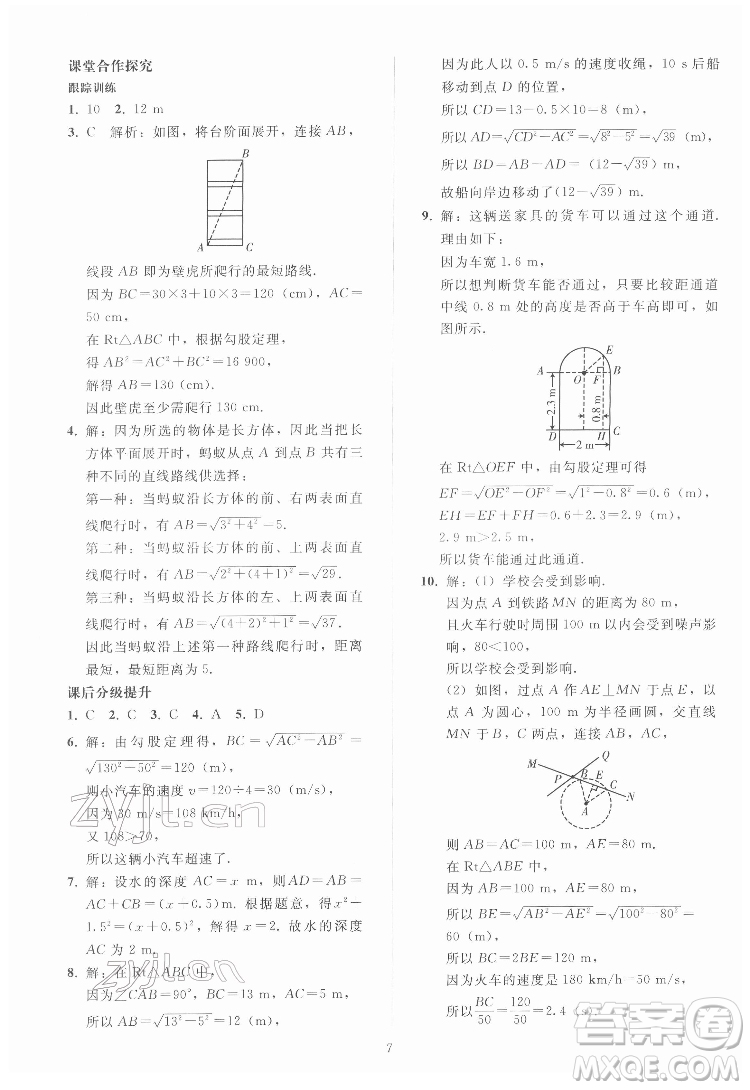 课堂合作探究
跟踪训练
1. 10  2. 12 m
3. C  解析：如图，将台阶面展开，连接 AB，
B
A
C
线段 AB 即为壁虎所爬行的最短路线.
因为 BC=30×3+10×3=120 (cm)，AC=
50 cm，
在 Rt△ABC 中，根据勾股定理，
得 AB²=AC²+BC²=16 900，
解得 AB=130(cm).
因此壁虎至少需爬行 130 cm.
4. 解：因为所选的物体是长方体，因此当把长
方体平面展开时，蚂蚁从点 A 到点 B 共有三
种不同的直线路线供选择：
第一种：当蚂蚁沿长方体的前、右两表面直
线爬行时，有 AB=√(3²+4²)=5.
第二种：当蚂蚁沿长方体的前、上两表面直
线爬行时，有 AB=√(2²+(4+1)²)=√29.
第三种：当蚂蚁沿长方体的左、上两表面直
线爬行时，有 AB=√((4+2)²+1²)=√37.
因此当蚂蚁沿上述第一种路线爬行时，距离
最短，最短距离为 5.
课后分级提升
1. C  2. C  3. C  4. A  5. D
6. 解：由勾股定理得，BC=√(AC²−AB²)=
√(130²−50²)=120 (m)，
则小汽车的速度 v=120÷4=30(m/s)，
因为 30 m/s=108 km/h，
又 108>70，
所以这辆小汽车超速了.
7. 解：设水的深度 AC=x m，则 AB=CB=
AC+CB=(x+0.5)m. 根据题意，得 x²+
1.5²=(x+0.5)²，解得 x=2. 故水的深度
AC 为 2 m.
8. 解：在 Rt△ABC 中，
因为∠CAB=90°，BC=13 m，AC=5 m，
所以 AB=√(13²−5²)=12 (m)，
因为此人以 0.5 m/s 的速度收绳，10 s 后船
移动到点 D 的位置，
所以 CD=13−0.5×10=8 (m)，
所以 AD=√(CD²−AC²)=√(8²−5²)=√39 (m)，
所以 BD=AB−AD=(12−√39)(m)，
故船向岸边移动了(12−√39)(m).
9. 解：这辆送家具的货车可以通过这个通道.
理由如下：
因为车宽 1.6 m，
所以想判断货车能否通过，只要比较距通道
中线 0.8 m 处的高度是否高于车高即可，如
图所示.
E
A
O
F
B
2.3 m
0.8 m
D
H
C
2 m
在 Rt△OEF 中，由勾股定理可得
EF=√(OE²−OF²)=√(1−0.8²)=0.6 (m)，
EH=EF+FH=0.6+2.3=2.9 (m)，
2.9 m>2.5 m，
所以货车能通过此通道.
10. 解：(1) 学校会受到影响.
因为点 A 到铁路 MN 的距离为 80 m，
且火车行驶时周围 100 m 以内会受到噪声影
响，80<100，
所以学校会受到影响.
(2) 如图，过点 A 作 AE⊥MN 于点 E，以
点 A 为圆心，100 m 为半径画圆，交直线
MN 于 B，C 两点，连接 AB，AC，
M
P
B
E
Q
C
N
A
则 AB=AC=100 m，AE=80 m，
在 Rt△ABE 中，
所以 BE=√(AB²−AE²)=√(100²−80²)=
60 (m)，
所以 BC=2BE=120(m).
因为火车的速度是 180 km/h=50 m/s，
所以 BC/50=120/50=2.4 (s)，
7
zyjl.cn
zyjl.cn
答案卷
MXQE.COM